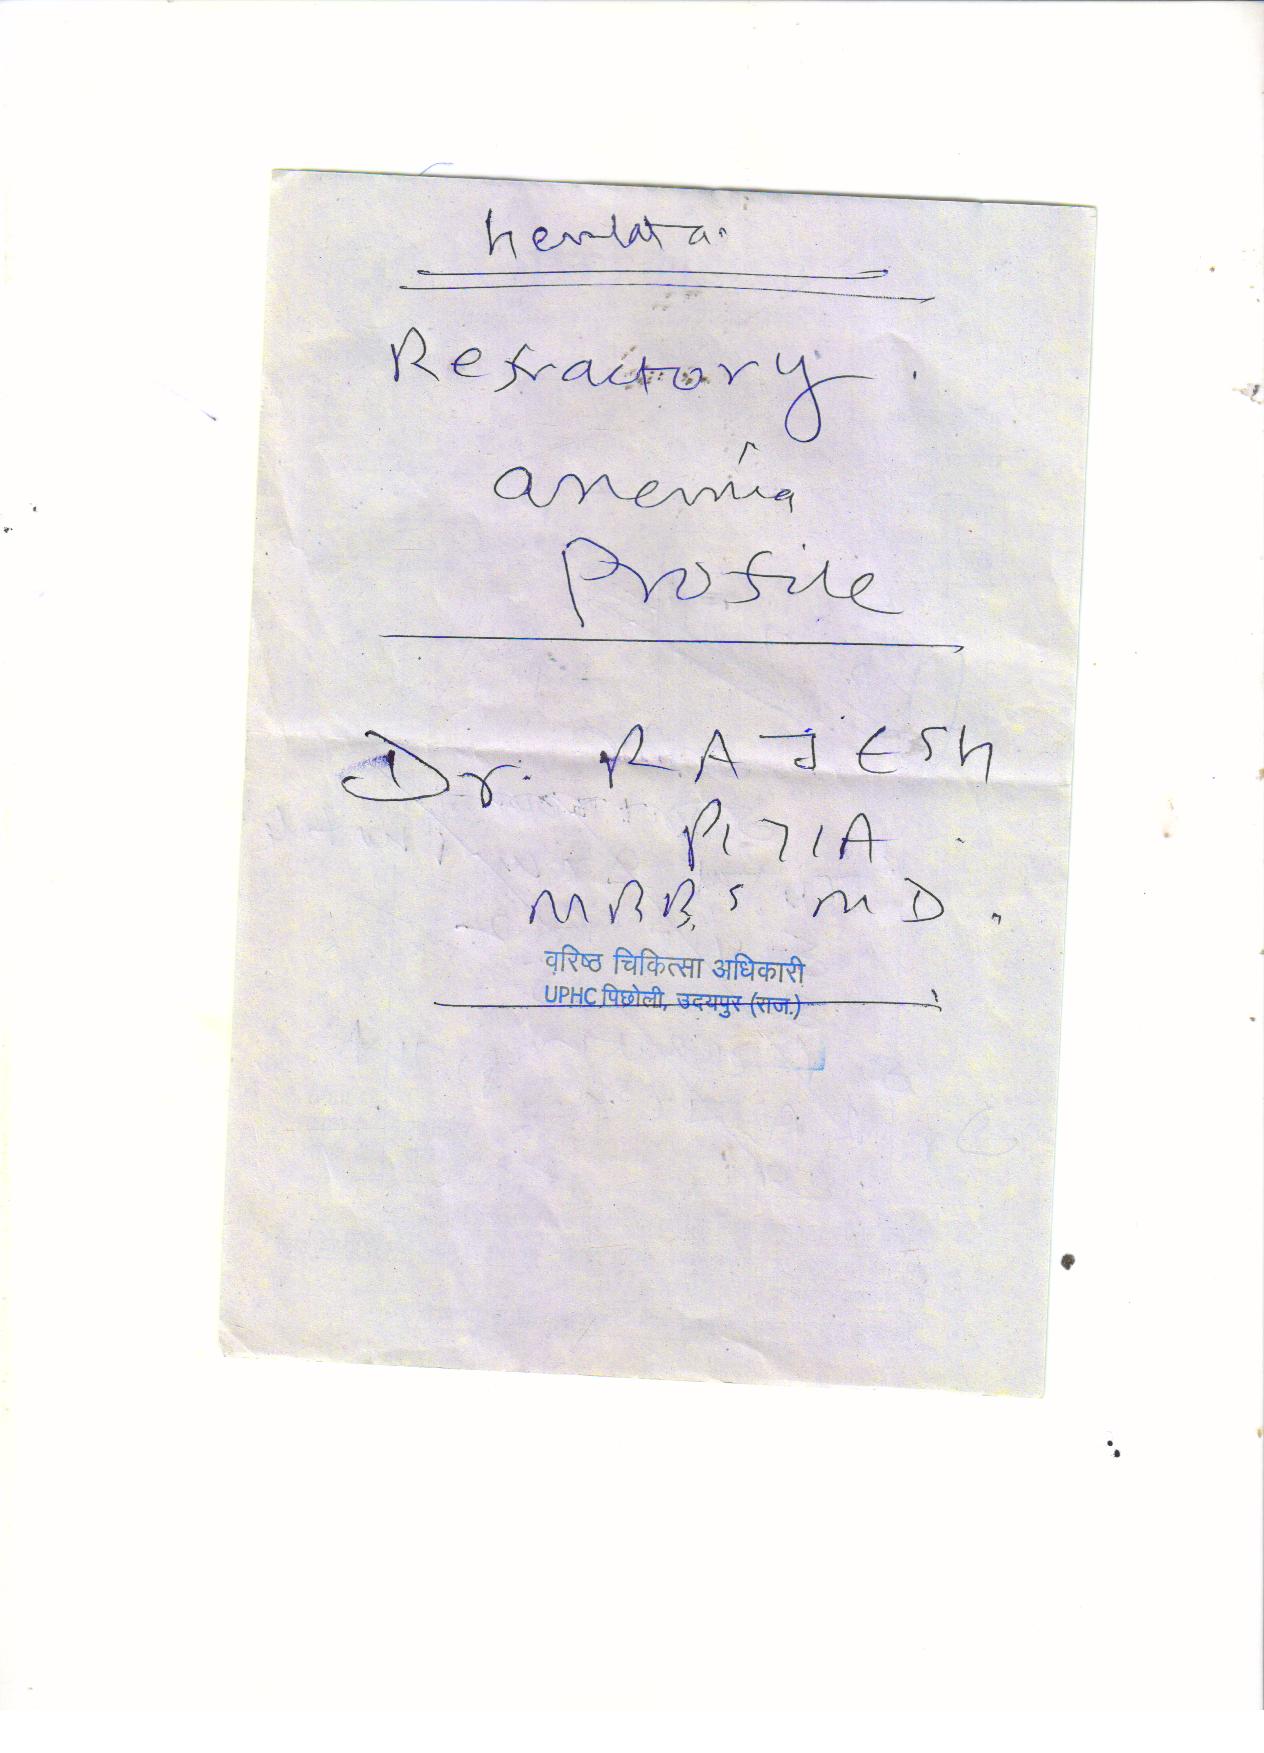 hemlata.
Refractory
anemia
Profile
Dr. RAJESH
MBBS MD.
वरिष्ठ चिकित्सा अधिकारी
UPHC पिछोली, उदयपुर (राज.)